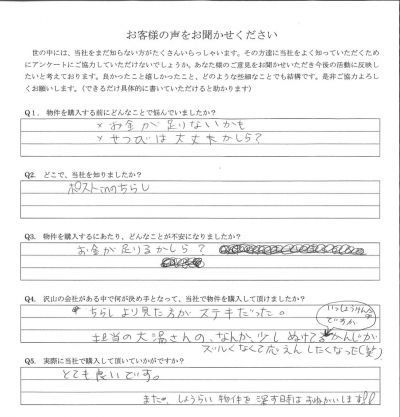 お客様の声をお聞かせください
世の中には、当社をまだ知らない方がたくさんいらっしゃいます。その方達に当社をよく知っていただくため
にアンケートにご協力していただけないでしょうか。あなた様のご意見をお聞かせいただき今後の活動に反映し
たいと考えております。良かったこと嬉しかったこと、どのような些細なことでも結構です。是非ご協力よろし
くお願いします。（できるだけ具体的に書いていただけると助かります）
Q1. 物件を購入する前にどんなことで悩んでいましたか？
× お金が足りないかも
× せつびは大丈夫かしら？
Q2. どこで、当社を知りましたか？
ポストinのちらし
Q3. 物件を購入するにあたり、どんなことが不安になりましたか？
お金が足りるかしら？
Q4. 沢山の会社がある中で何が決め手となって、当社で物件を購入して頂けましたか？
* ちらしより見た方がステキだった。
いっしょうけんめい
ですが
担当の大湯さんの、なんか、少しぬけてるかんじが
ズルくなくて応えんしたくなった(笑)
Q5. 実際に当社で購入して頂いていかがですか？
とても良いです。
また、しょうらい物件を探す時はおねがいします!!